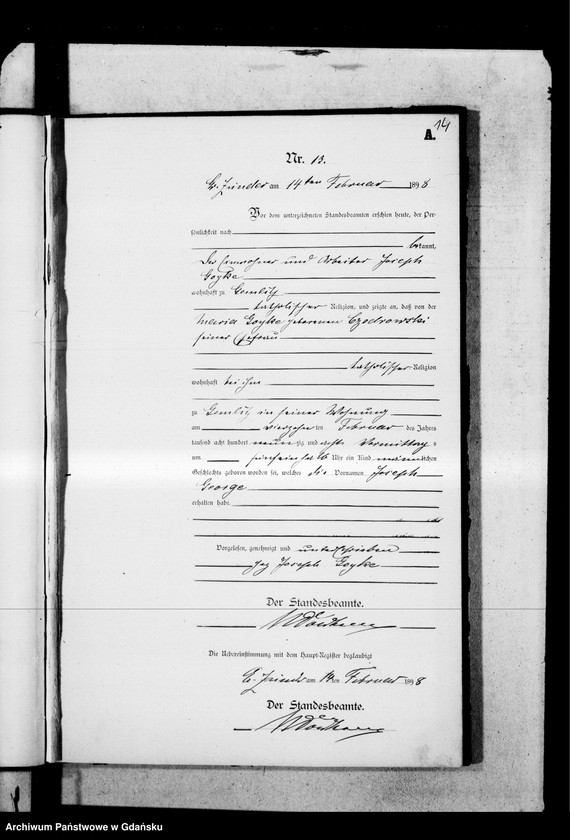 14
A.
Nr. 13.
Gr. Zünder am 14ten Februar 1898
Vor dem unterzeichneten Standesbeamten erschien heute, der Per-
sönlichkeit nach
bekannt,
der Einwohner und Arbeiter Joseph
Goyke
wohnhaft zu Gemlitz
katholischer Religion, und zeigte an, daß von der
Maria Goyke geborenen Czodrowski
seiner Ehefrau
katholischer Religion
wohnhaft bei ihm
zu Gemlitz in seiner Wohnung
am vierzehn ten Februar des Jahres
tausend acht hundert neunzig und acht Vormittags
um Uhr ein Kind männlichen
Geschlechts geboren worden sei, welches die Vornamen Joseph
George
erhalten habe.
Vorgelesen, genehmigt und unterschrieben
gez Joseph Goyke
Der Standesbeamte.
Die Uebereinstimmung mit dem Haupt-Register beglaubigt
Gr. Zünder am 14ten Februar 1898
Der Standesbeamte.
Archiwum Państwowe w Gdańsku